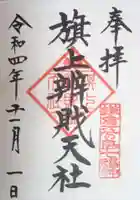 奉拝
旗上辨財天社
令和四年十一月一日